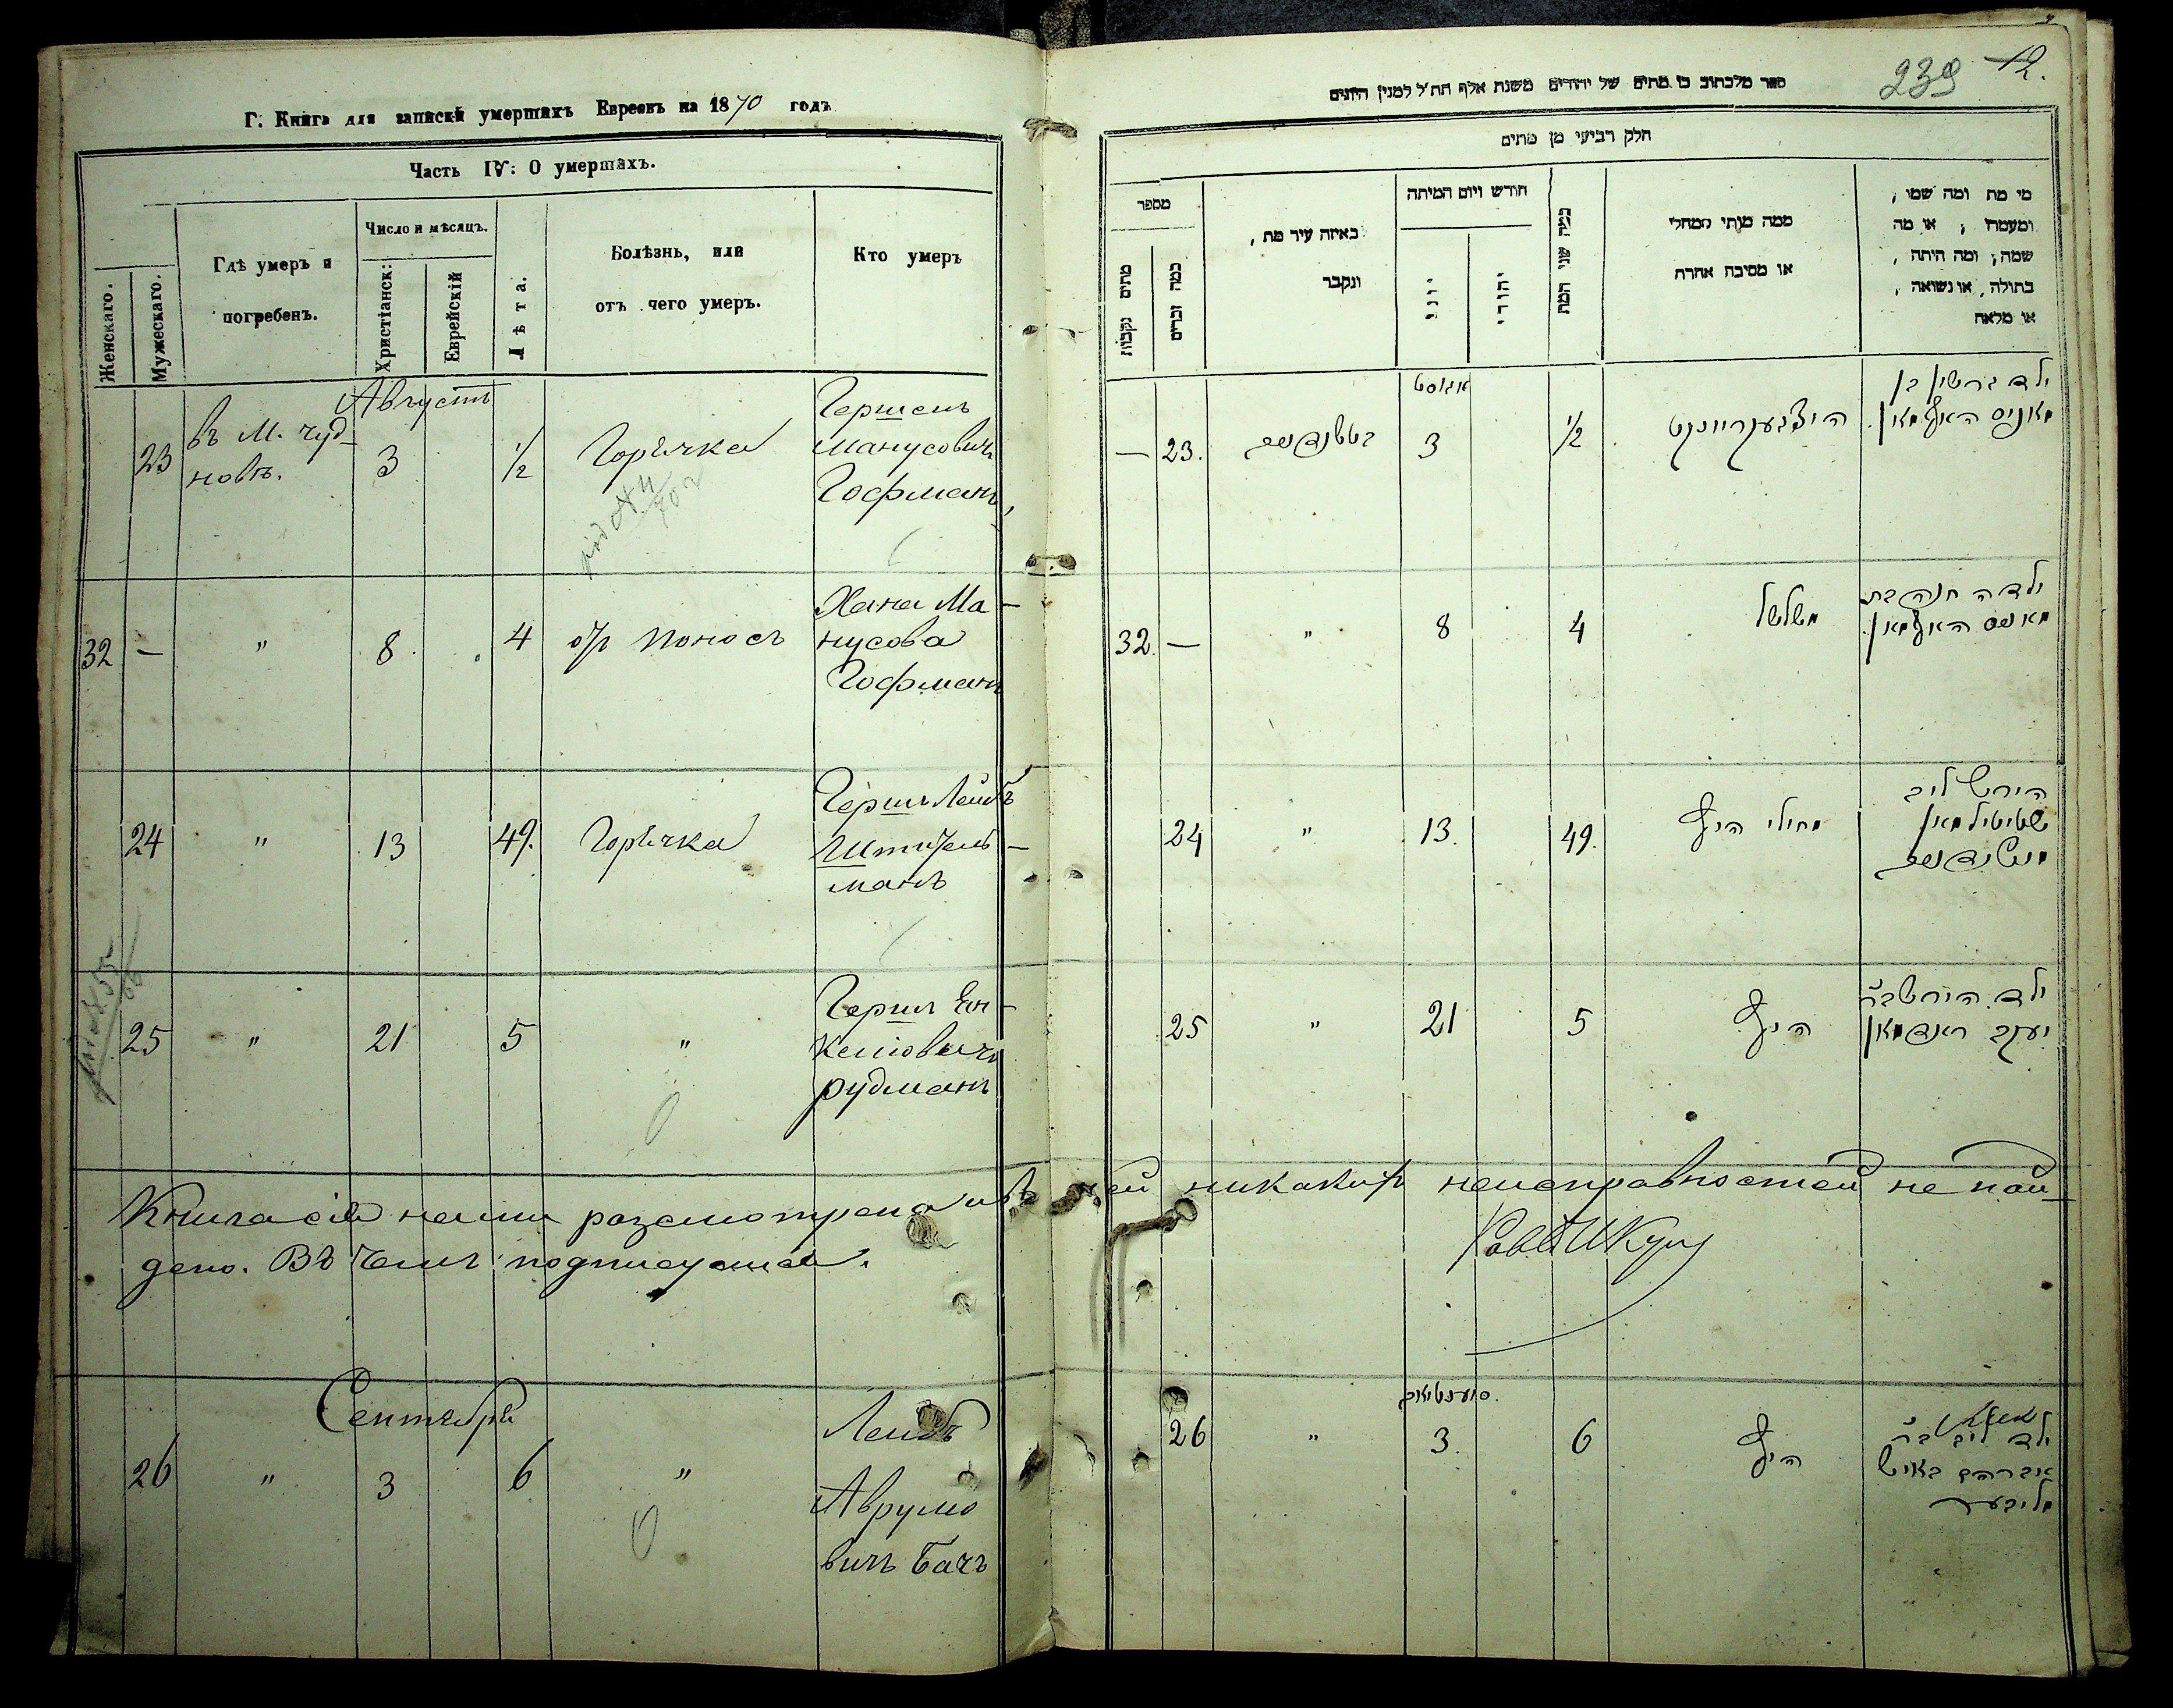 Г. Книга для записки умершихъ Евреевъ на 1870 годъ
Часть IV: О умершихъ.
Женскаго.
Мужескаго.
Гдѣ умеръ и
погребенъ.
Число и мѣсяцъ.
Христіанск:
Еврейскій
Лѣта.
Болѣзнь, или
отъ чего умеръ.
Кто умеръ
Августъ
23
въ М. Чуд-
новѣ.
3
1/2
Горячка
Гершенъ
Манусовичъ
Гофманъ
32 — " 8 4
Поносъ
Хана Ма-
нусова
Гофманъ
24 " 13 49.
Горячка
Гершъ Лейбъ
Штитель-
манъ
25 " 21 5 "
Гершъ Ен-
келіовичъ
рудманъ
Книга сія нами разсмотрена и въ ней никакихъ неисправностей не най-
дено. Въ чемъ подписуемся.
Сентября
26 " 3 6 "
Лейбъ
Аврумо
вичъ Бачъ
239 12.
ספר מלכתוב בו מתים של יהודים משנת אלף תת״ל למנין היונים
חלק רביעי מן מתים
מספר
מתים נקבות
כמה זכרים
באיזה עיר מת,
ונקבר
חודש ויום המיתה
יוני
יהודי
כמה שני המת
ממה מנותי המחלי
או מסיבה אחרת
מי מת ומה שמו,
ומעמדו, או מה
שמה, ומה היתה,
בתולה, או נשואה,
או מלאה
אגוסט
— 23. 3 1/2
ילד גרשין בן
מאניס האפמאן
32. — " 8 4
משלשל
ילדה חנה בת
מאניס האפמאן
24 " 13. 49.
מחולי היץ
הירש ליב
שטיטילמאן
25 " 21 5
היץ
ילד הירש ב״ר
יעקב ראדמאן
26 " 3. 6
היץ
ילד ליב ב״ר
אברהם באטש